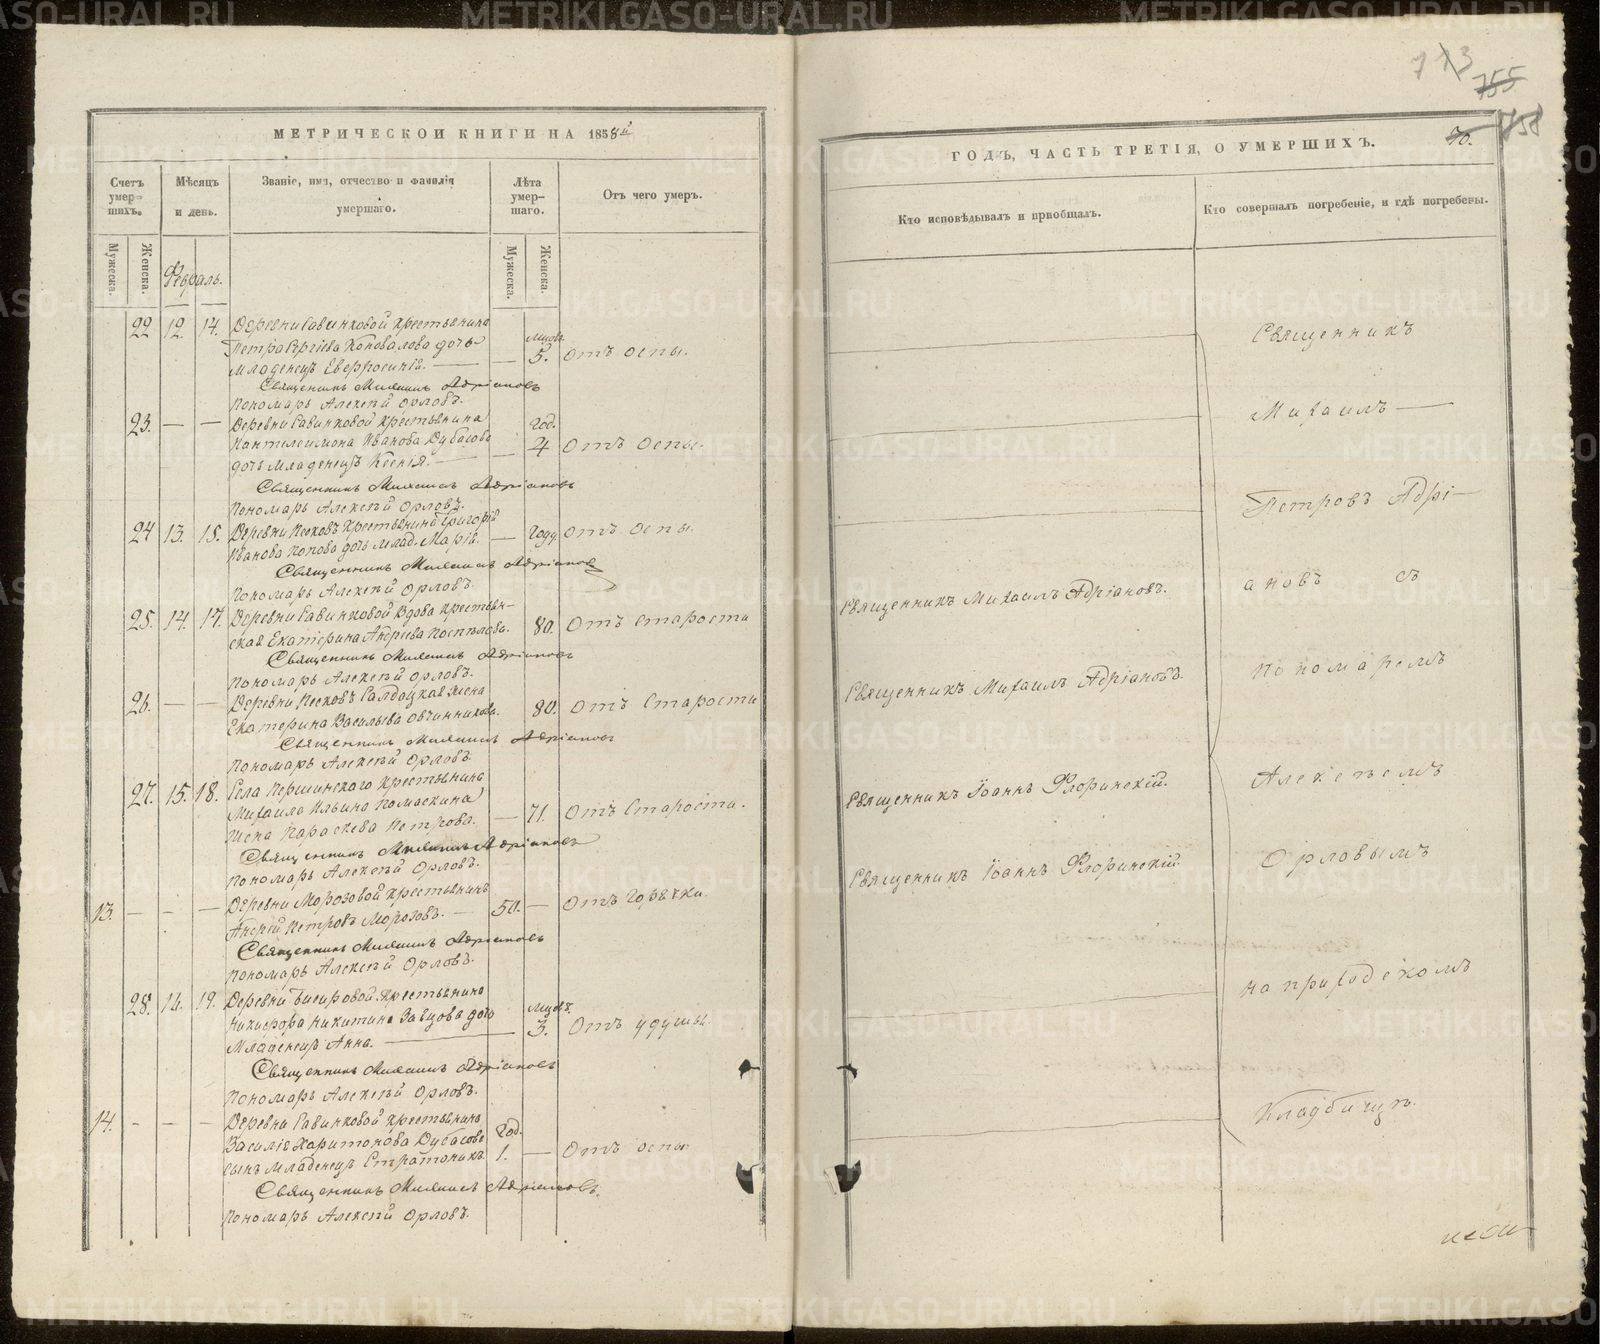 МЕТРИЧЕСКОИ КНИГИ НА 1858й
Счетъ умер=шихъ.
Мѣсяцъ и день.
Званіе, имя, отчество и фамилія умершаго.
Лѣта умер-шаго.
Отъ чего умеръ.
Мужеска.
Женска.
Февраль.
Мужеска.
Женска.
22 12. 14. Деревни Савинковой крестьянина
Петра Сергіева Коновалова дочь
младенецъ Евфросинія. — — мцов. 5. отъ оспы.
Священникъ Михаилъ Адріановъ
Пономарь Алексѣй Орловъ.
23. — — Деревни Савинковой крестьянина
Пантелеимона Иванова Дубасова
дочь младенецъ Ксенія. — — год. 4 Отъ Оспы.
Священникъ Михаилъ Адріановъ
Пономарь Алексѣй Орловъ.
24 13. 15. Деревни Песковъ крестьянина Григорія
Иванова Попова дочь млад. Марія. — году отъ Оспы.
Священникъ Михаилъ Адріановъ
Пономарь Алексѣй Орловъ.
25. 14. 17. Деревни Савинковой Вдова крестьян-
ская Екатерина Андреева Поспелова. 80. Отъ старости
Священникъ Михаилъ Адріановъ
Пономарь Алексѣй Орловъ.
26. — — Деревни Песковъ Салдацкая жена
Екатерина Васильева Овчинникова. 80. отъ Старости
Священникъ Михаилъ Адріановъ
Пономарь Алексѣй Орловъ.
27. 15. 18. Села Першинского крестьянина
Михаила Ильина Помаскина
жена Параскева Петрова. — 71. Отъ Старости.
Священникъ Михаилъ Адріановъ
Пономарь Алексѣй Орловъ.
13. — — — Деревни Морозовой крестьянинъ
Андрей Петровъ Морозовъ. — 50. — Отъ Горячки.
Священникъ Михаилъ Адріановъ
Пономарь Алексѣй Орловъ.
28. 16. 19. Деревни крестьянина
Никифора Никитина дочь
Младенецъ Анна. — мцовъ. 3. Отъ удушья.
Священникъ Михаилъ Адріановъ
Пономарь Алексѣй Орловъ.
14. — — — Деревни Савинковой крестьянина
Василія Харитонова Дубасова
сынъ младенецъ Стратоникъ год. 1. — Отъ оспы
Священникъ Михаилъ Адріановъ.
Пономарь Алексѣй Орловъ.
755
758
70.
ГОДЪ, ЧАСТЬ ТРЕТІЯ, О УМЕРШИХЪ.
Кто исповѣдывалъ и пріобщалъ.
Кто совершалъ погребеніе, и гдѣ погребены.
Священникъ Михаилъ Адріановъ.
Священникъ Михаилъ Адріановъ.
Священникъ Іоаннъ Флоринскій.
Священникъ Іоаннъ Флоринскій.
Священникъ
Михаилъ —
Петровъ Адрі-
ановъ съ
пономаремъ
Алексѣемъ
Орловымъ
на приходскомъ
Кладбищѣ.
METRIKI.GASO-URAL.RU